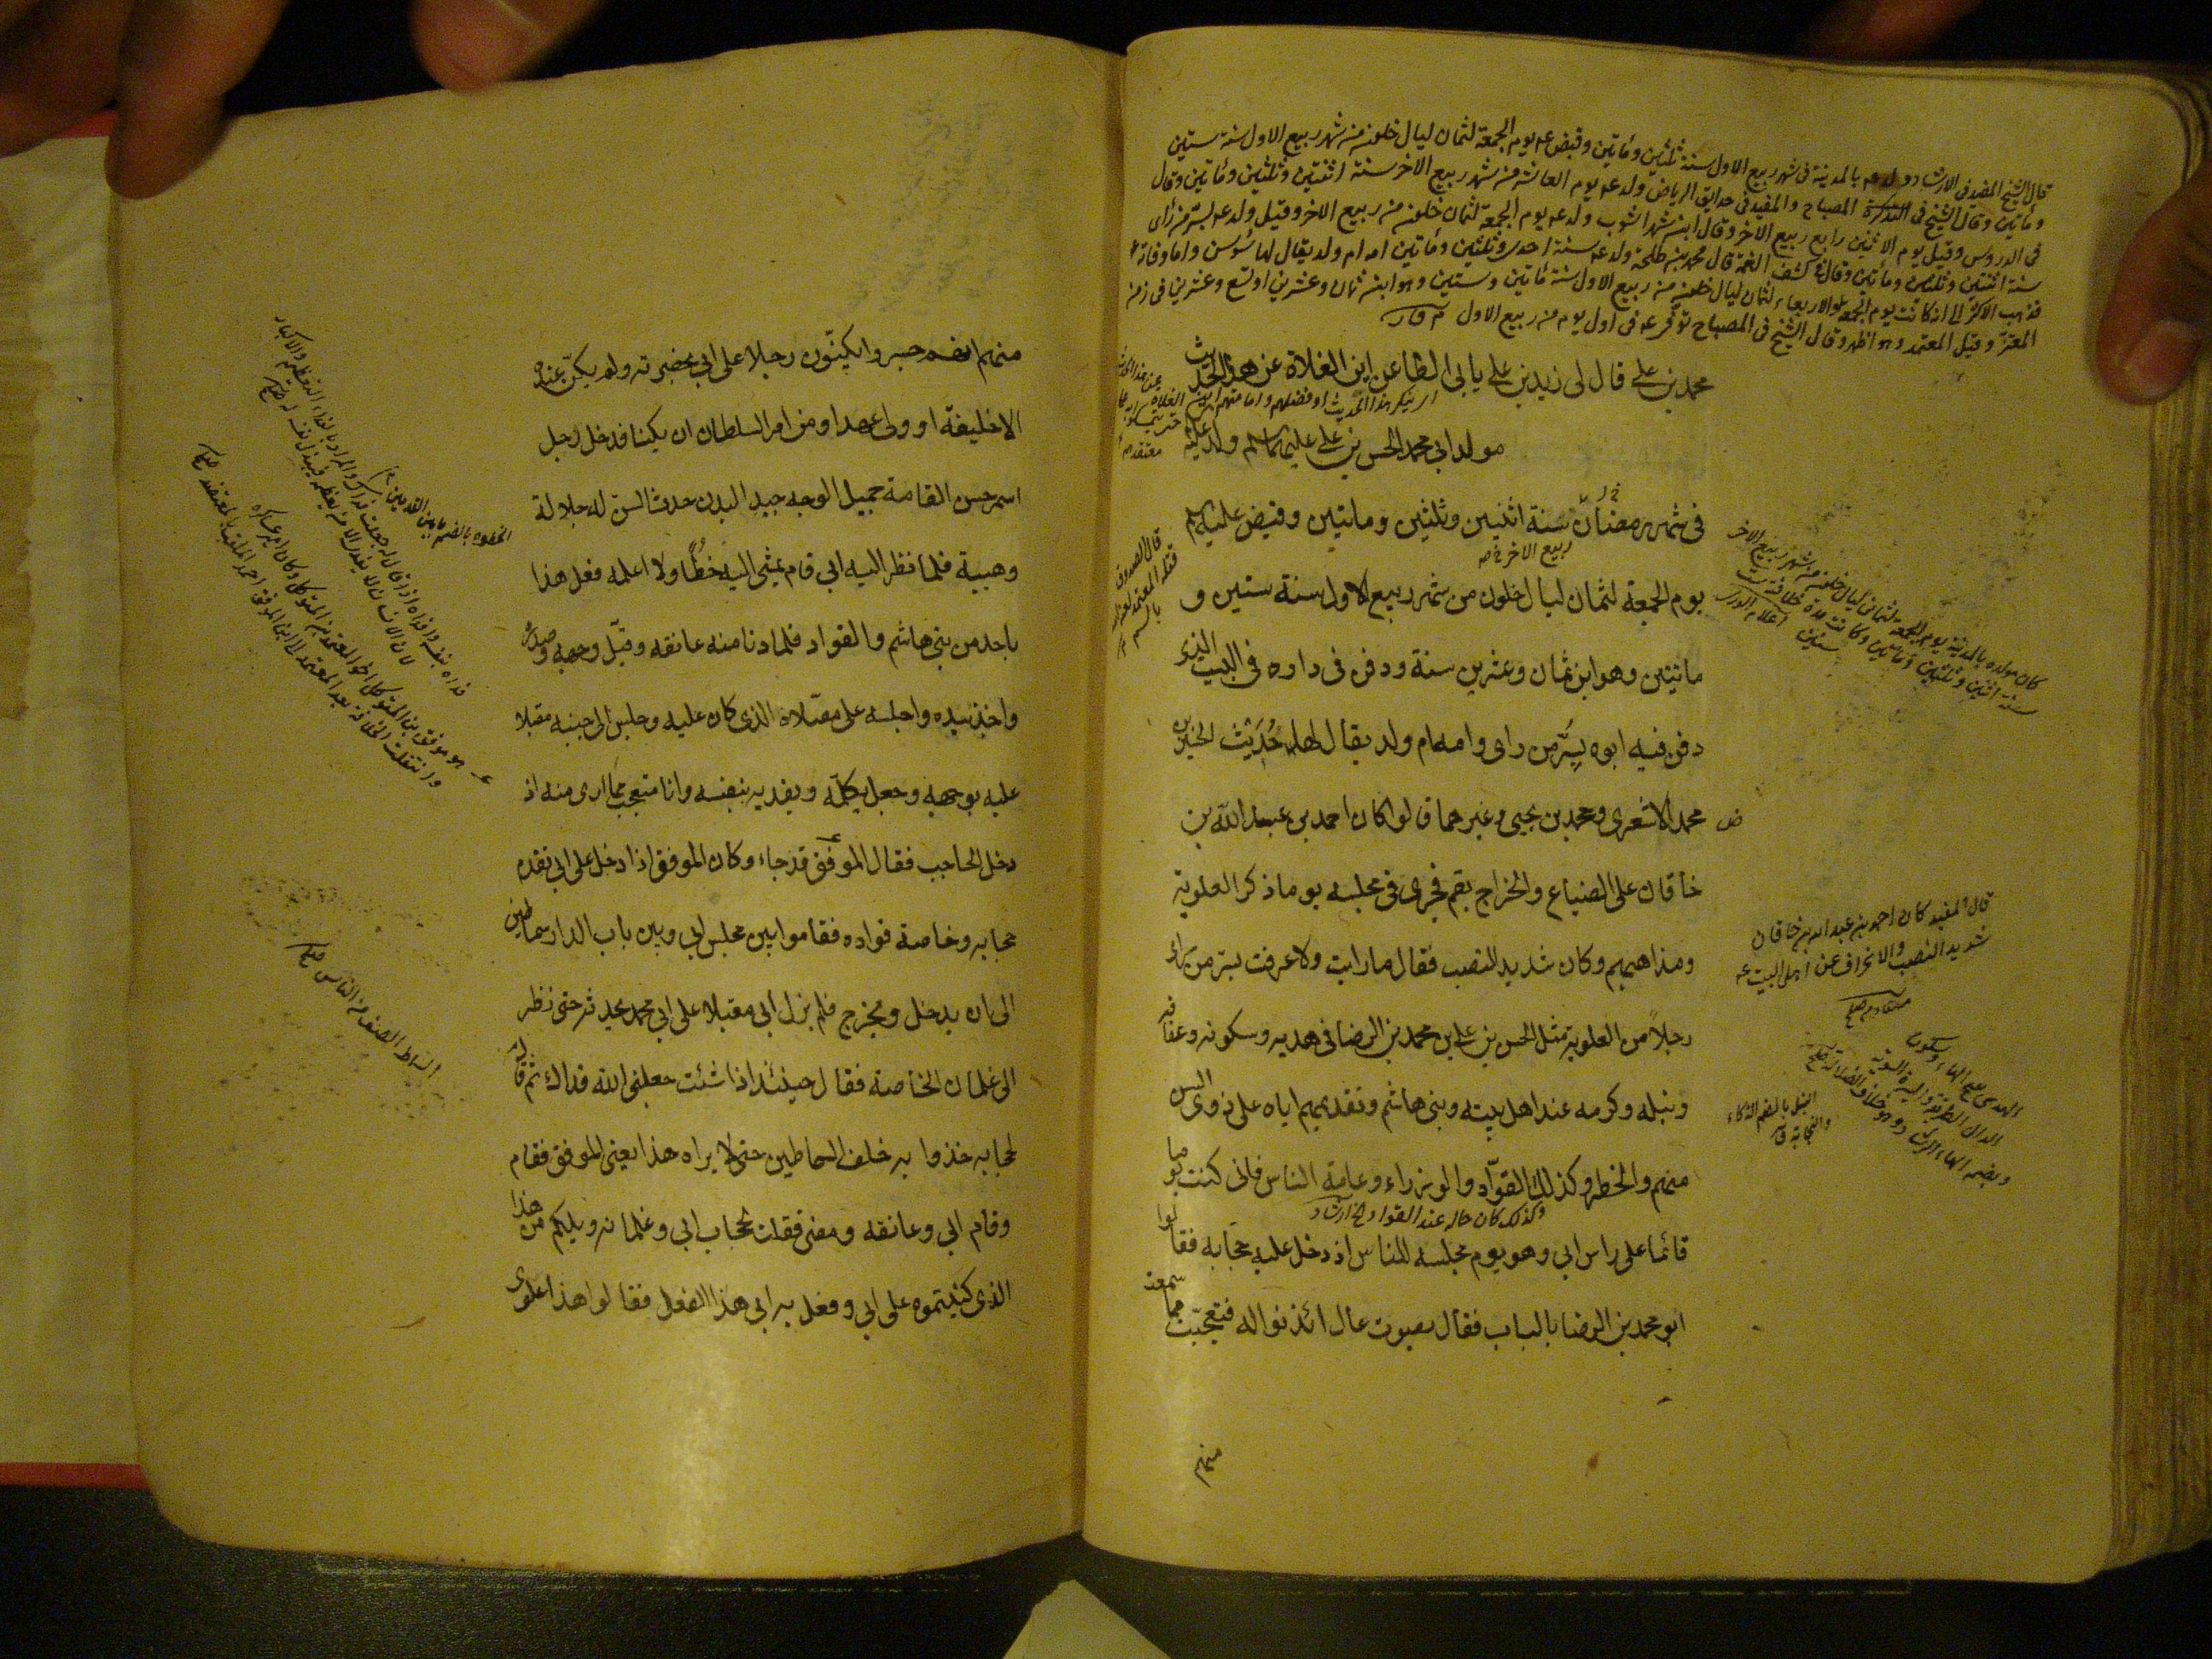 قال الشيخ المفيد في الارشاد ولد عم بالمدينة في شهر ربيع الاول سنة ثلثين ومأتين وقبض عم يوم الجمعة لثمان ليال خلون من شهر ربيع الاول سنة ستين
ومأتين وقال الشيخ في المصباح والمفيد في حدايق الرياض ولد عم يوم العاشر من شهر ربيع الاخر سنة اثنتين وثلثين ومأتين وقال
في الدروس وقيل يوم الاثنين رابع ربيع الاخر وقال ابن شهراشوب ولد عم يوم الجمعة لثمان خلون من ربيع الاخر وقيل ولد عم بسر من رأى
سنة اثنتين وثلثين ومأتين وقال في كشف الغمة قال محمد بن طلحة ولد عم سنة احدى وثلثين ومأتين امه ام ولد يقال لها سوسن واما وفاته
فذهب الاكثر الى انه كانت يوم الجمعة والاربعاء لثمان ليال خلون من ربيع الاول سنة مأتين وستين وهو ابن ثمان وعشرين او تسع وعشرين في زمن
المعتز وقيل المعتمد وهو اظهر وقال الشيخ في المصباح توفي عم في اول يوم من ربيع الاول
محمد بن علي قال لي زيد بن علي يا بن الطاعن اين الغلاة عن هذا الحديث
مولد ابي محمد الحسن بن علي عليهما السلم ولد عليه
في شهر رمضان سنة اثنين وثلثين ومايتين وقبض عليه السلم
ربيع الاخر
يوم الجمعة لثمان ليال خلون من شهر ربيع الاول سنة ستين و
مائتين وهو ابن ثمان وعشرين سنة ودفن في داره في البيت الذي
دفن فيه ابوه بسر من راى وامه ام ولد يقال لها حديث الحسين بن
محمد الاشعري ومحمد بن يحيى وغيرهما قالوا كان احمد بن عبيد الله بن
خاقان على الضياع والخراج بقم فجرى في مجلسه يوما ذكر العلوية
ومذاهبهم وكان شديد النصب فقال ما رايت ولا عرفت بسر من راى
رجلا من العلوية مثل الحسن بن علي بن محمد بن الرضا في هديه وسكونه وعفافه
ونبله وكرمه عند اهل بيته وبني هاشم وتقديمهم اياه على ذوي السن
منهم والخطر وكذلك القواد والوزراء وعامة الناس فاني كنت يوما
وكذلك كان حاله عند القواد ارشاد
قائما على راس ابي وهو يوم مجلسه للناس اذ دخل عليه حجابه فقالوا
ابو محمد بن الرضا بالباب فقال بصوت عال ائذنوا له فتعجبت مما سمعت
منهم
قال الصدوق
قتله المعتمد لعنه الله
بالسم
كان مولده بالمدينة يوم الجمعة لثمان ليال خلون من شهر ربيع الاخر
سنة اثنين وثلثين ومأتين وكانت مدة خلافته ست
سنين اعلام الورى
قال المفيد كان احمد بن عبد الله بن خاقان
شديد النصب والانحراف عن اهل البيت عم
النبل بالضم الذكاء
والنجابة
منهم انفسهم جسروا يكنون رجلا على ابي بحضرته ولم يكن عنده
الا خليفة او ولي عهد او من امر السلطان ان يكنا فدخل رجل
اسمر حسن القامة جميل الوجه جيد البدن حدث السن له جلالة
وهيبة فلما نظر اليه ابي قام يمشي اليه خطًا ولا اعلمه فعل هذا
باحد من بني هاشم والقواد فلما دنا منه عانقه وقبّل وجهه وصدره
واخذ بيده واجلسه على مصلاه الذي كان عليه وجلس الى جنبه مقبلا
عليه بوجهه وجعل يكلمه ويفديه بنفسه وانا متعجب مما ارى منه اذ
دخل الحاجب فقال الموفق قد جاء وكان الموفق اذا دخل على ابي تقدم
حجابه وخاصة قواده فقاموا بين مجلس ابي وبين باب الدار سماطين
الى ان يدخل ويخرج فلم يزل ابي مقبلا على ابي محمد يحدثه حتى نظر
الى غلمان الخاصة فقال حينئذ اذا شئت جعلني الله فداك ثم قال
لحجابه خذوا به خلف السماطين حتى لا يراه هذا يعني الموفق فقام
وقام ابي وعانقه ومضى فقلت لحجاب ابي وغلمانه ويلكم من هذا
الذي كنيتموه على ابي وفعل به ابي هذا الفعل فقالوا هذا علوي
الخطوة بالضم ما بين القدمين
السماط الصف من الناس